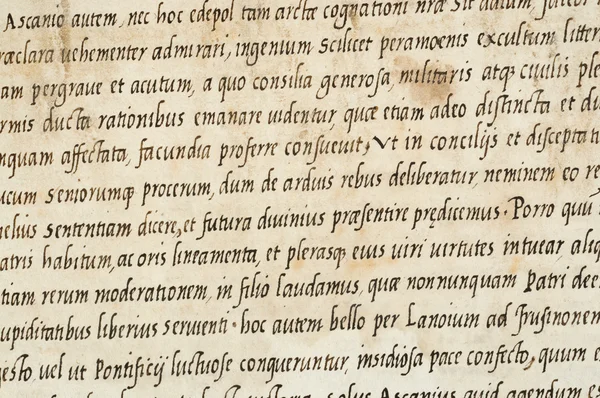 Ascanio autem, nec hoc edepol tam arctæ cognationi nræ sit datum,
ræclara uehementer admirari, ingenium scilicet peramoenis excultum litter
am pergraue et acutum, a quo consilia generosa, militaris atq; ciuilis ple
rmis ducta rationibus emanare uidentur, quæ etiam adeo distincta et du
nquam affectata, facundia proferre consueuit, Vt in concilijs et disceptati
ucum seniorumq; procerum, dum de arduis rebus deliberatur, neminem eo re
elius sententiam dicere, et futura diuinius præsentire prędicemus. Porro quũ
atris habitum, ac oris lineamenta, et plerasq; eius uiri uirtutes intuear, aliq
tiam rerum moderationem, in filio laudamus, quæ nonnunquam Patri dee
upiditatibus liberius seruienti. hoc autem bello per Lanoium ad Frusinonem
gesto uel ut Pontificij luctuose conqueruntur, insidiosa pace confecto, quum e
Ascanius quid agendum es